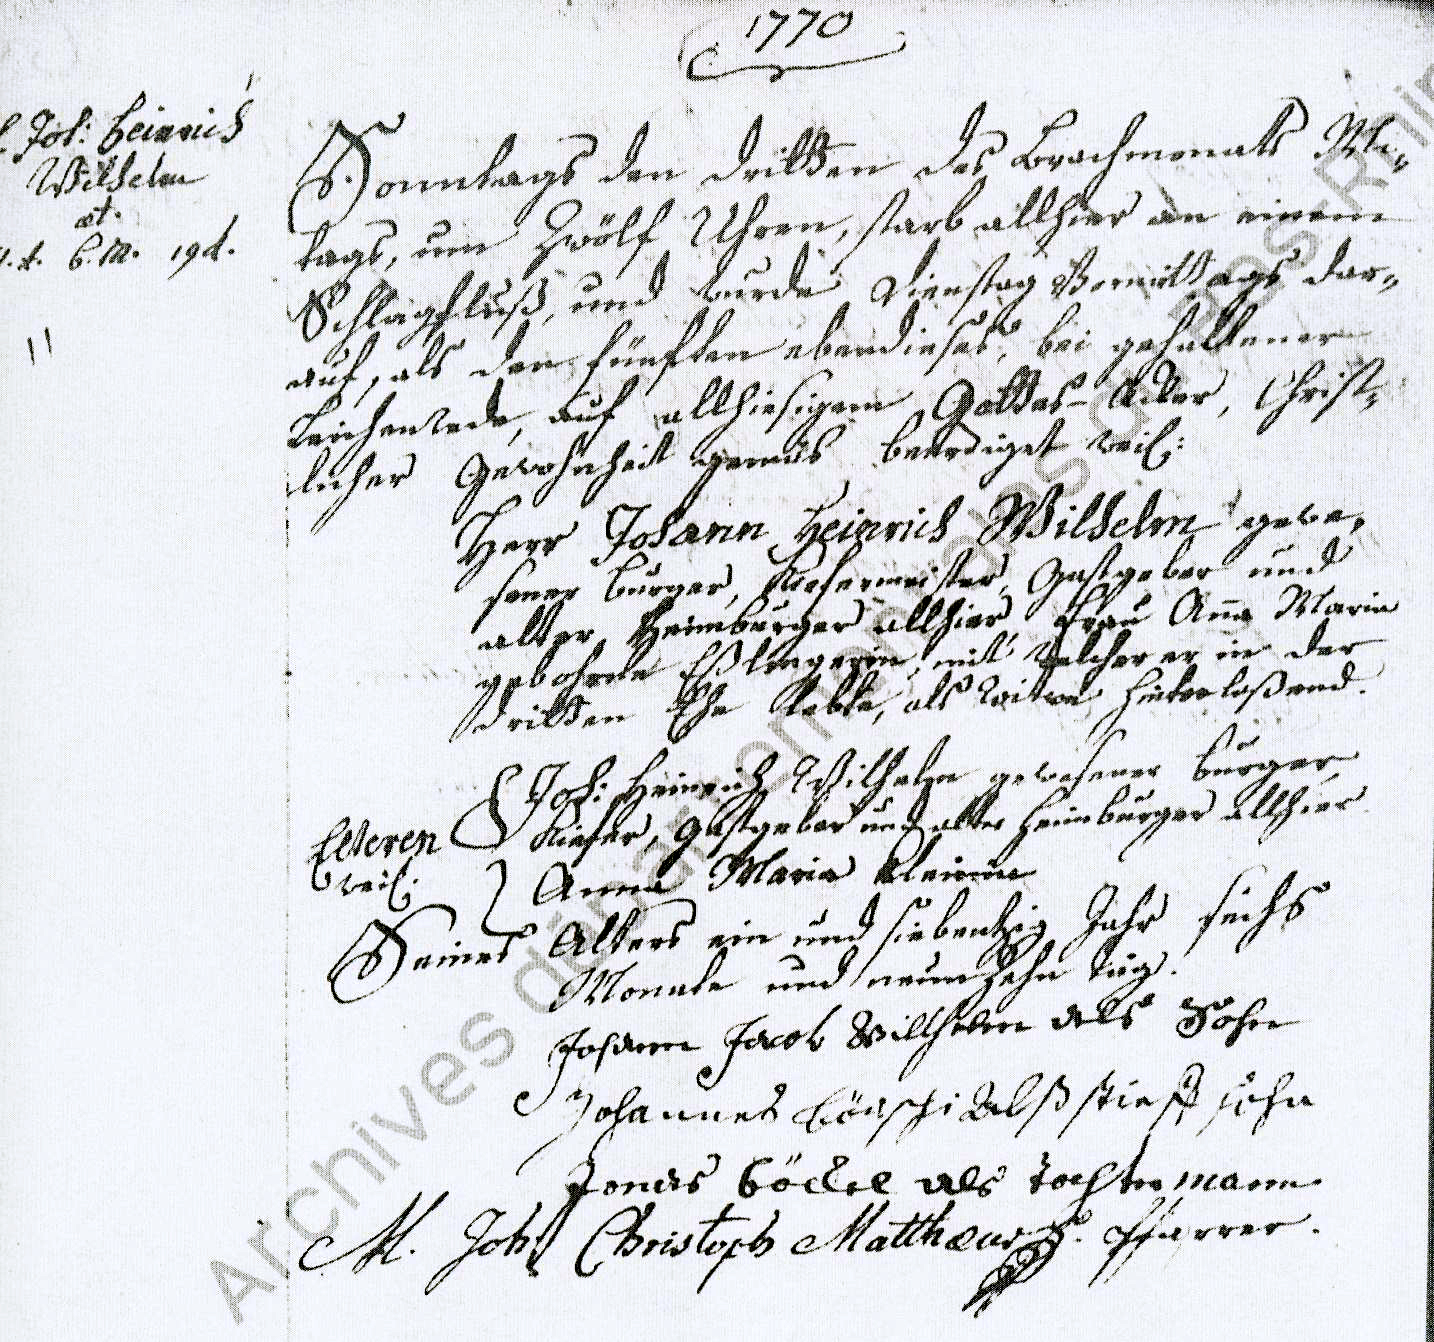 1770
Joh: Heinrich
Wilhelm
æt.
6. M. 19 d.
11
Sonntags den dritten des Brachmonats Mi-
tags, um Zwölf Uhren, starb allhier an einem
Schlagfluß, und wurde Dienstag Vormittags dar-
auf, als den fünften ebendieses, bei gehaltener
Leichenrede, auf allhiesigem Gottes-Acker, Christ-
licher Gewohnheit gemäs beerdiget weil:
Herr Johann Heinrich Wilhelm gewe-
sener burger, Kiefermeister, Gastgeber und
alter Heimburger allhier Frau Aña Maria
gebohrne Eßlingerin, mit welcher er in der
dritten Ehe lebte, als Witwe hinterlaßend.
Elteren
weil:
Joh: Heinrich Wilhelm gewesener burger,
Kiefer, Gastgeber und alter Heimburger allhier
Anna Maria Kleinin
Seines Alters ein und siebentzig Jahr sechs
Monate und neunzehn täg.
Johann Jacob Wilhelm als Sohn
Johannes alß stieff sohn
Jonas Göckel als tochtermann
M. Joh. Christoph Matthæus p. t. Pfarrer.
Archives départementales du Bas-Rhin